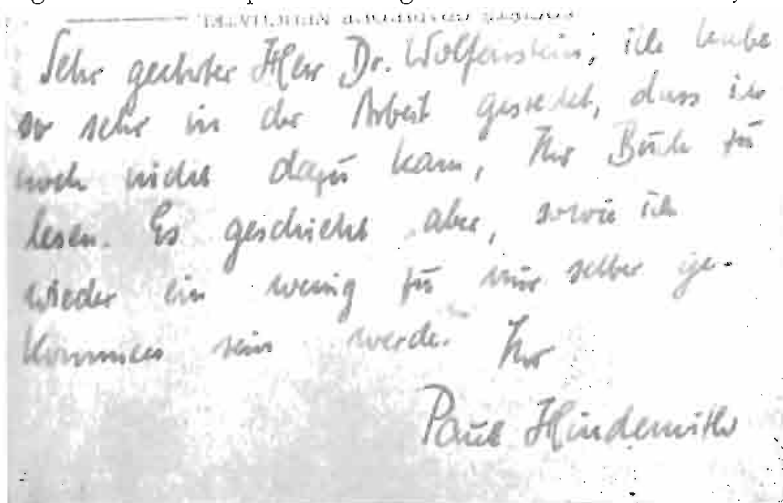 Sehr geehrter Herr Dr. Wolfenstein, ich habe
so sehr in der Arbeit gesteckt, dass ich
noch nicht dazu kam, Ihr Buch zu
lesen. Es geschieht aber, sowie ich
wieder ein wenig zu mir selber ge-
kommen sein werde. Ihr
Paul Hindemith